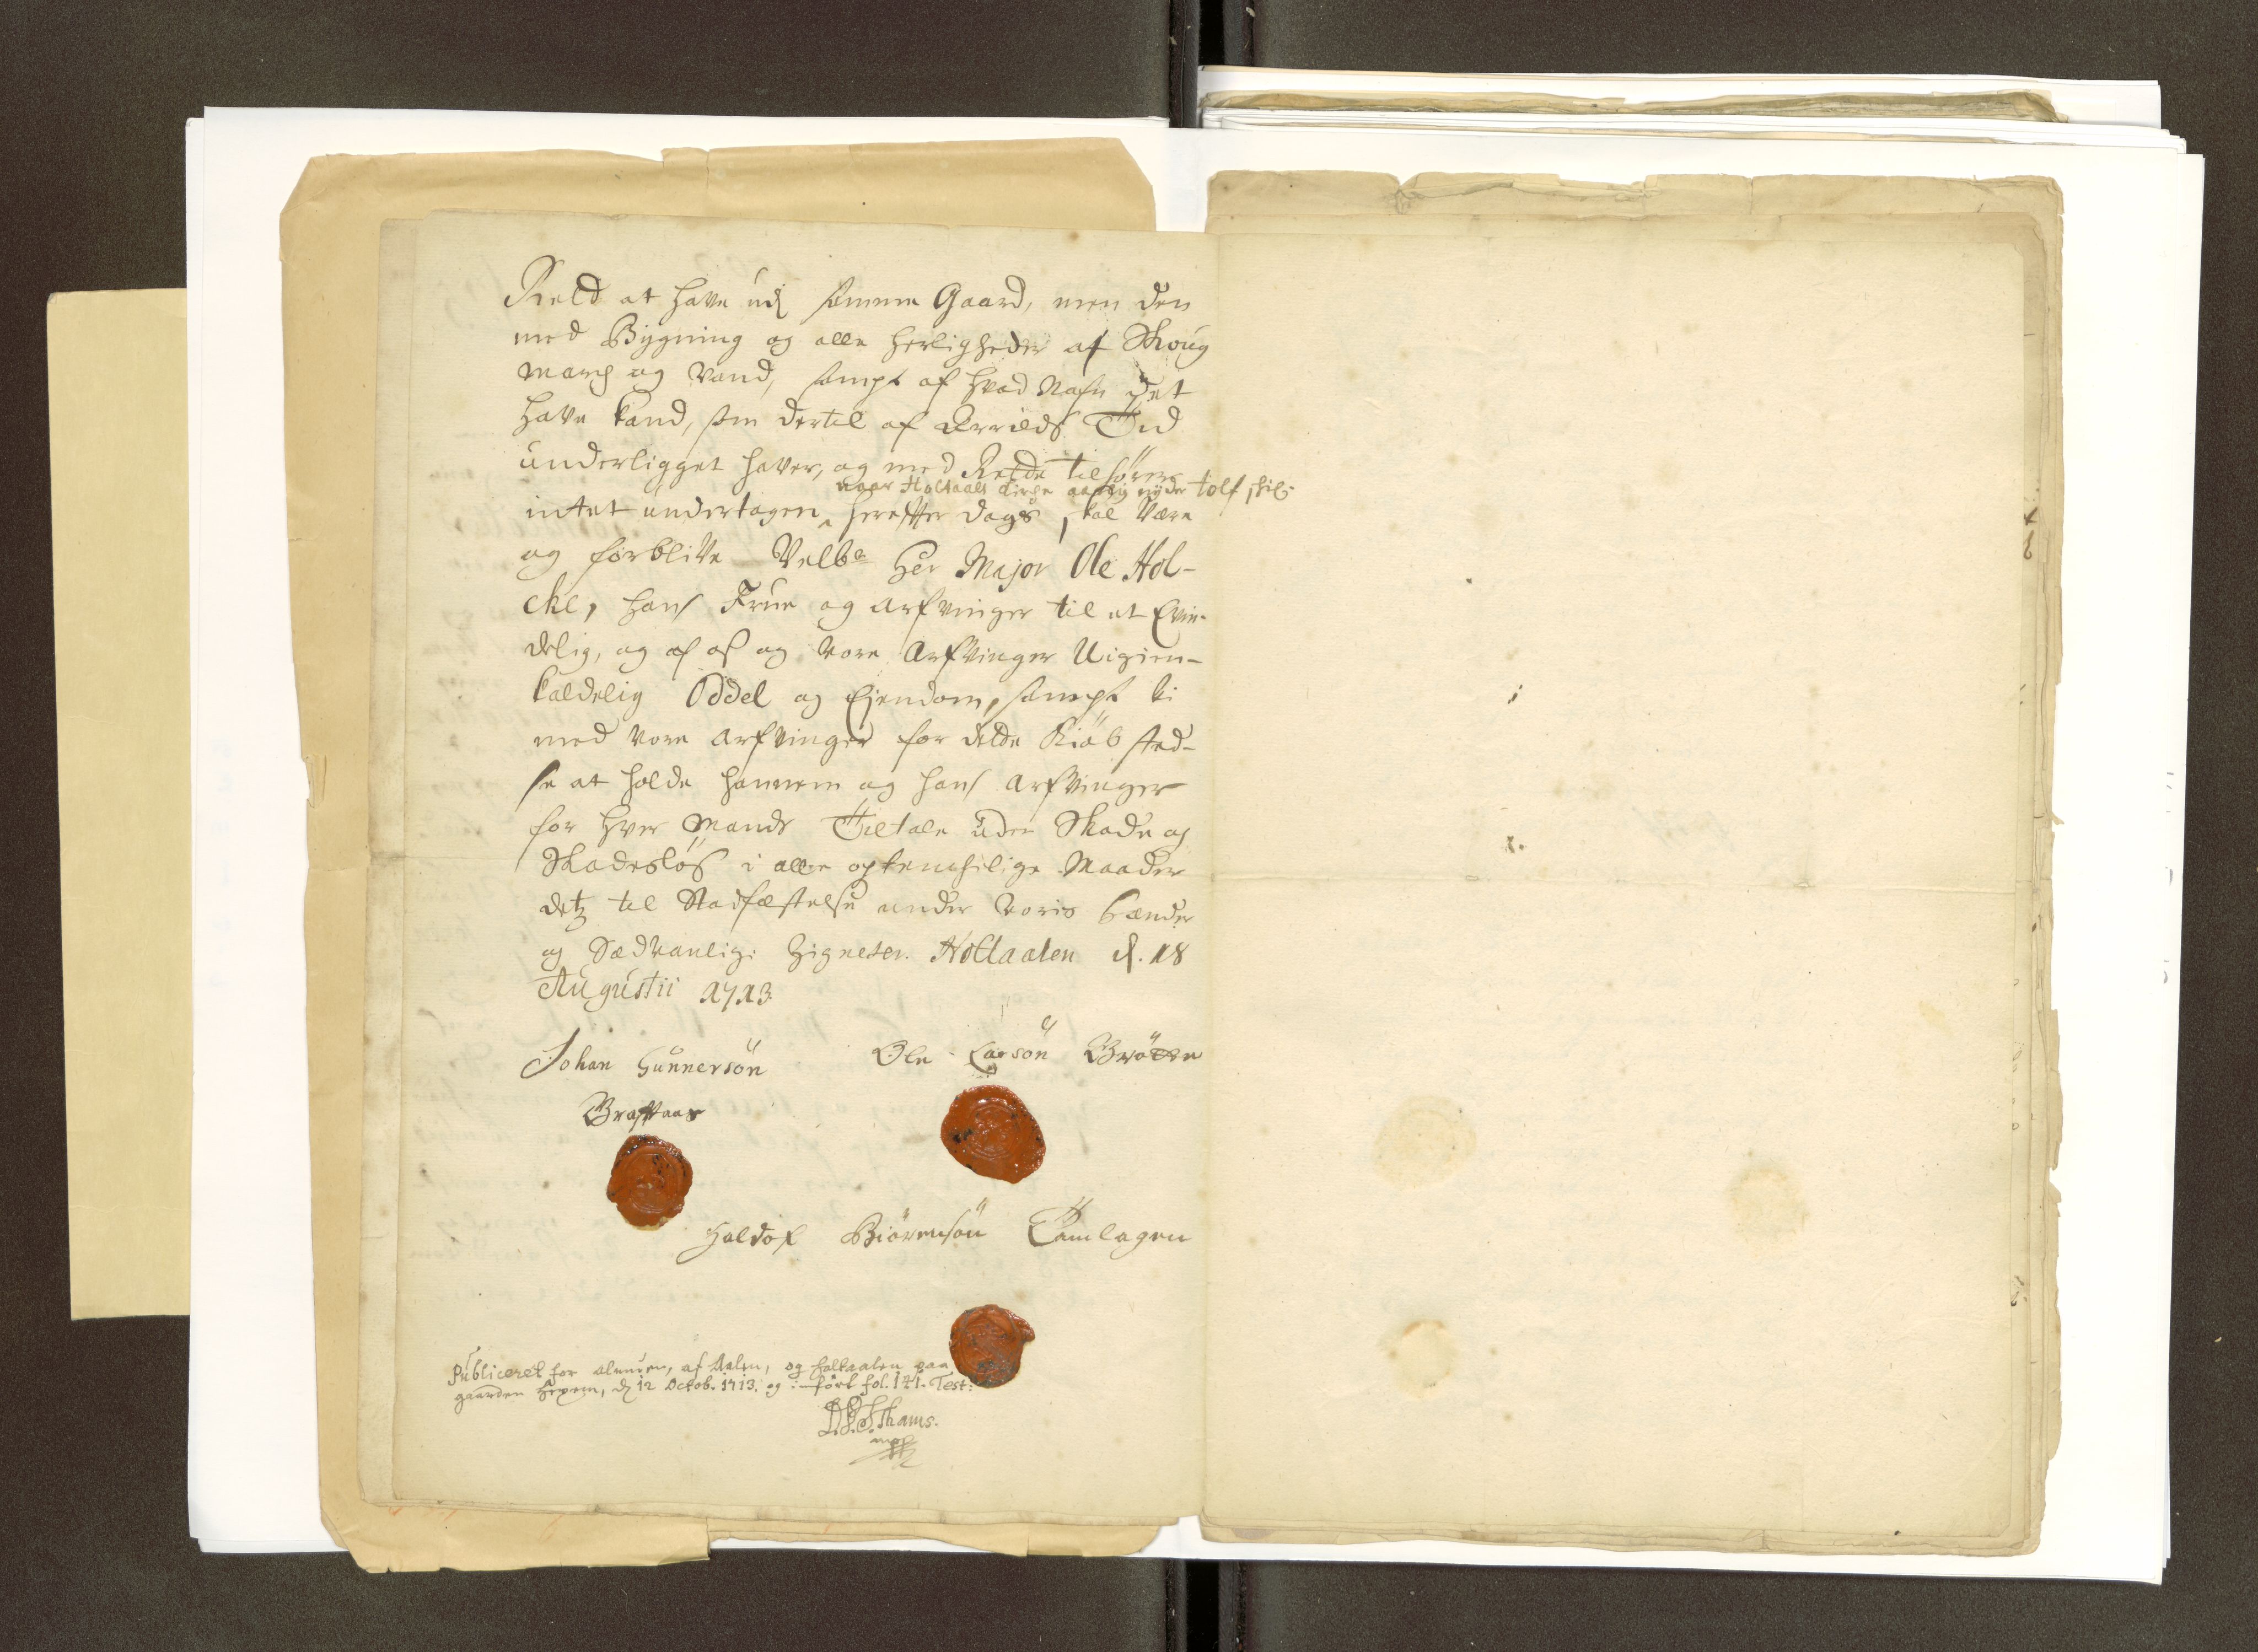 Rett at have udj samme Gaard, men den
med Bÿgning og alle herligheder af Skoug
march og Vand, sampt af hvad Nafn det
have kand, som dertil af Arrilds Tid
underligget haver, og med Rette tilhörer
naar Holtaals Kirche aarlig nÿder tolf skil:
intet undertagen, herefter dags, skal Være
og forblive Velbe Her Major Ole Hol-
cke, hans Frue og Arfvinger til et Evin-
delig, og af os og vore Arfvinger Uigien-
kaldelig Oddel og Ejendom, sampt vi
med vore Arfvinger for dette Kiöb sted-
se at holde hannem og hans Arfvinger
for hver Mands Tiltale uden Skade og
Skadeslös i alle optenchelige Maader
detz til Stadfæstelse under voris Hænder
og Sædvanlig: Zigneter. Holtaalen d. 18
Augustii 1713
Johan Gunnersön Ole Larsön Bröttn
Graftaas
Haldor Biörensön Tamlagen
Publiceret for almuen, af Aalen, og Holtaalen paa
gaarden Hexem, d 12 Octob. 1713. og i-fört fol. 141. Test:
Shams.
mp